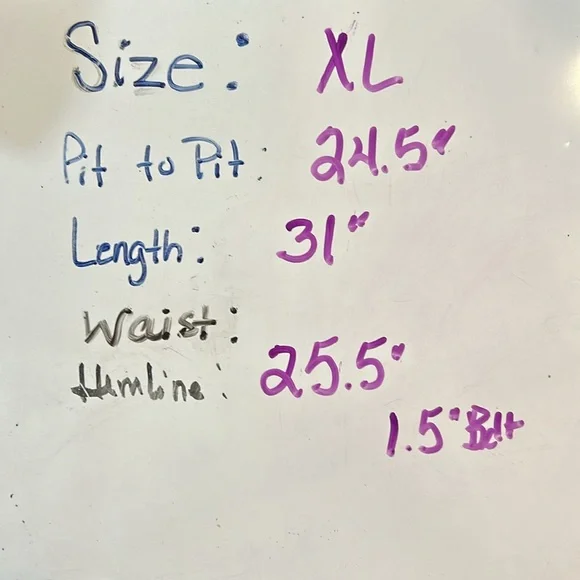 Size: XL
Pit to Pit: 24.5"
Length: 31"
Waist:
Hemline: 25.5"
1.5" Belt